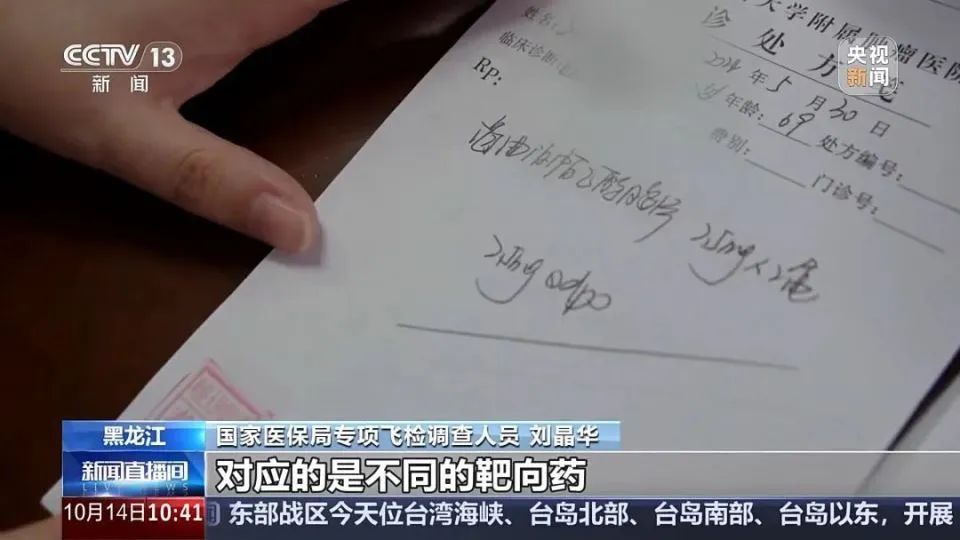 CCTV 13
新闻
央视
新闻
大学附属肿瘤医院
诊处方笺
姓名:
2024年5月30日
临床诊断
年龄: 69 处方编号:
Rp:
费别: 门诊号:
25mg
25mg
黑龙江 国家医保局专项飞检调查人员 刘晶华
新闻直播间
LIVE NEWS
对应的是不同的靶向药
10月14日10:41 东部战区今天位台湾海峡、台岛北部、台岛南部、台岛以东，开展